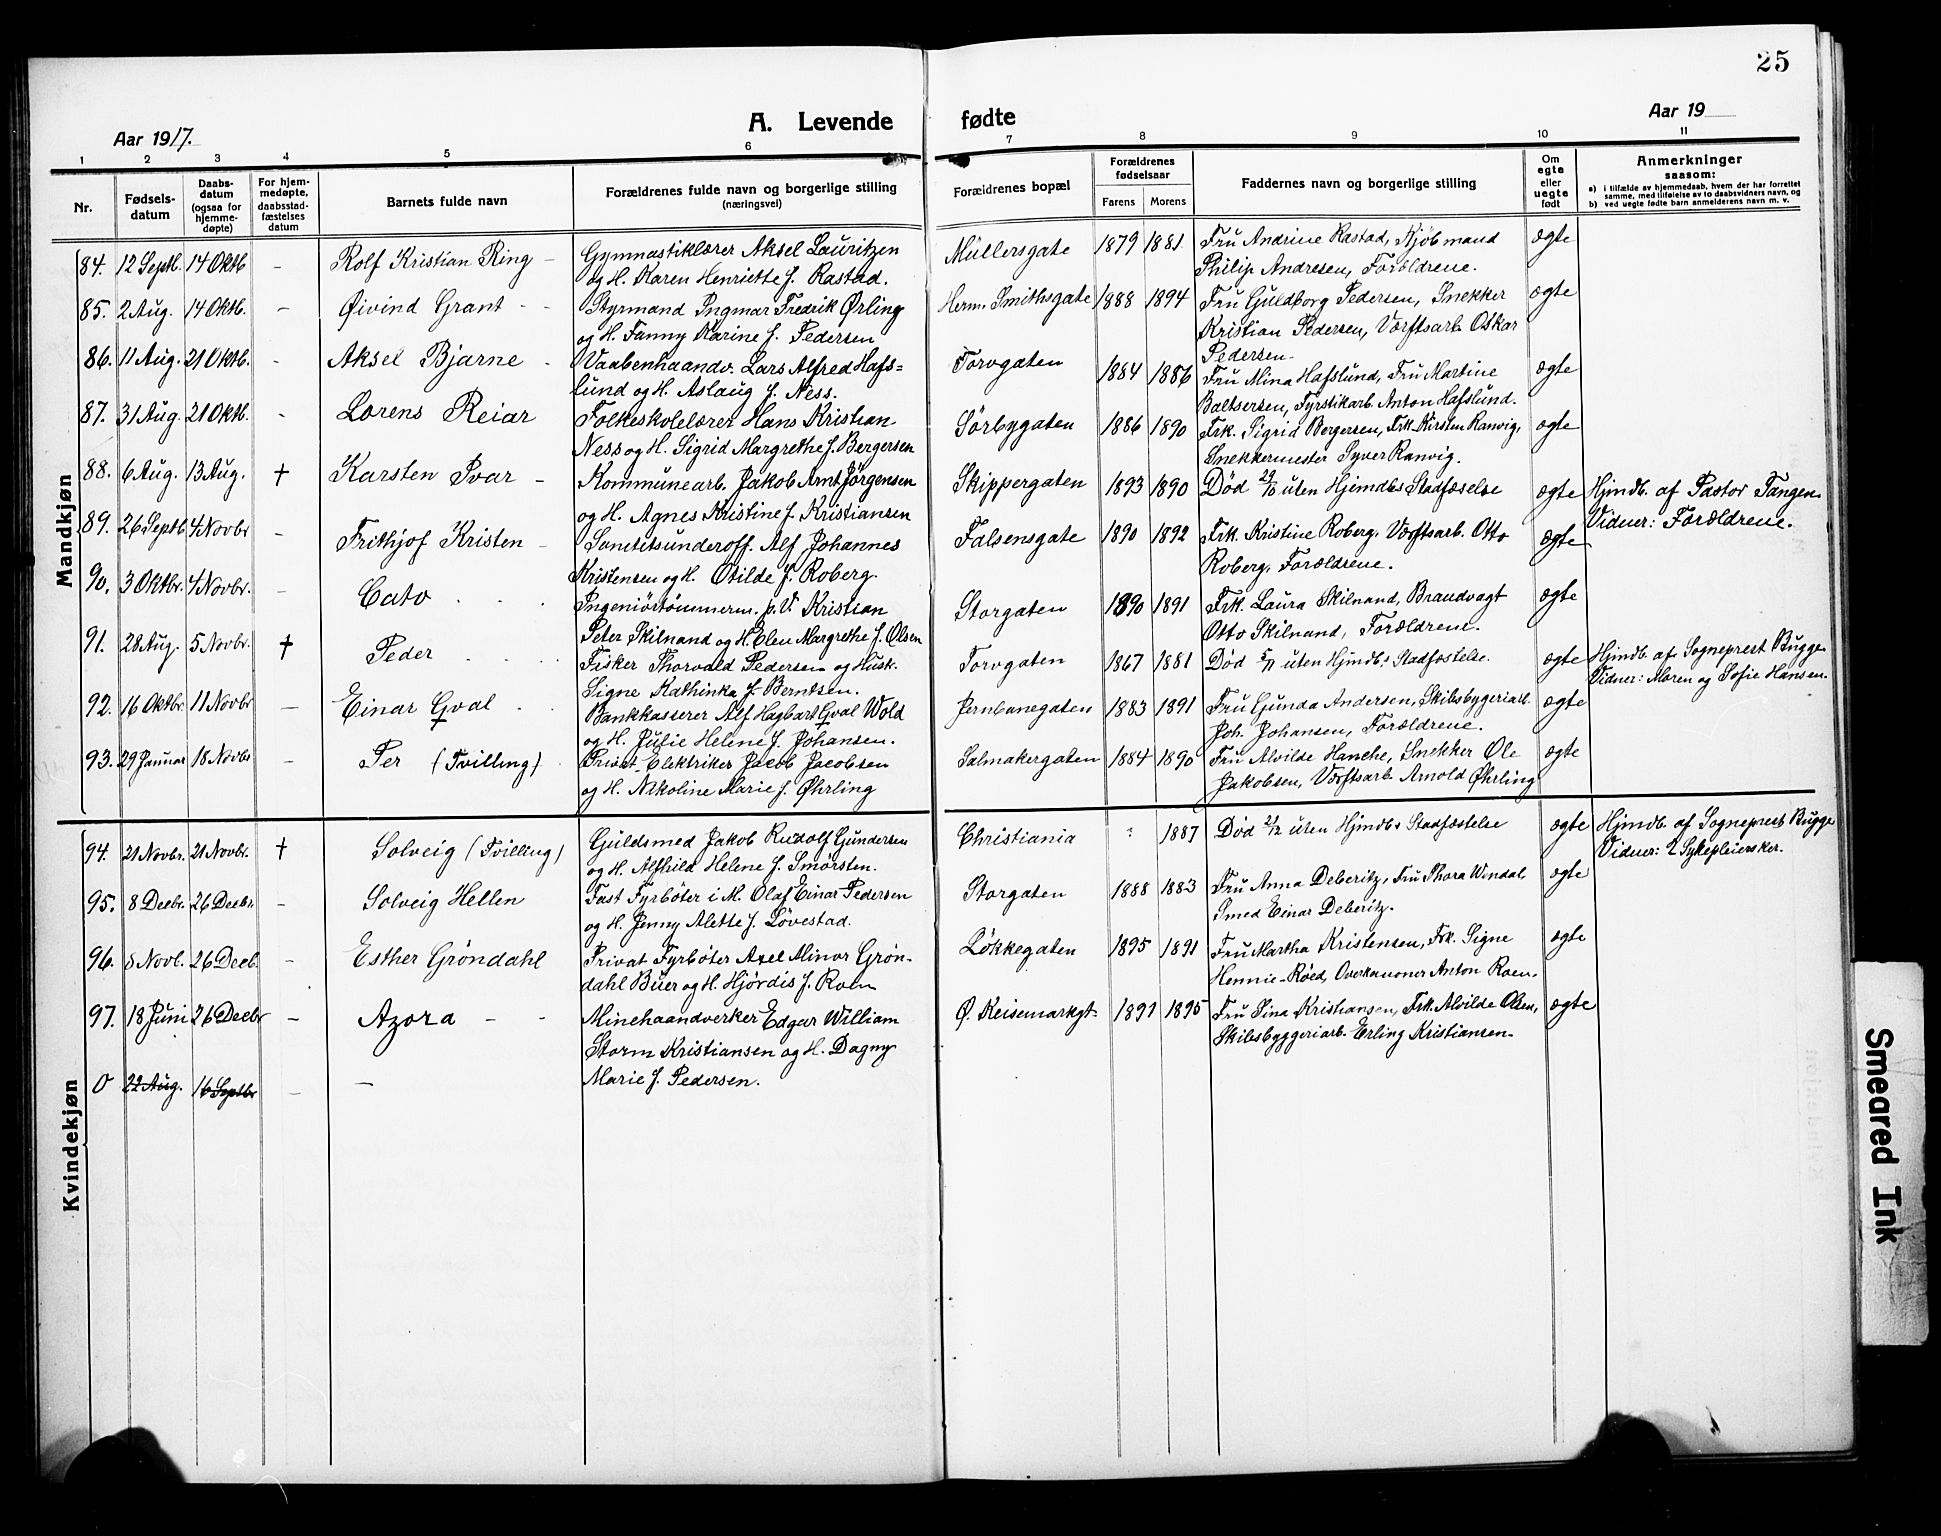 25
Aar 1917.
A. Levende fødte
Aar 19
1 2 3 4 5 6 7 8 9 10 11
Nr.
Fødsels-
datum
Daabs-
datum
(ogsaa for
hjemme-
døpte)
For hjem-
medøpte,
daabsstad-
fæstelses
datum
Barnets fulde navn
Forældrenes fulde navn og borgerlige stilling
(næringsvei)
Forældrenes bopæl
Forældrenes
fødselsaar
Farens Morens
Faddernes navn og borgerlige stilling
Om
egte
eller
uegte
født
Anmerkninger
saasom:
a) i tilfælde av hjemmedaab, hvem der har forrettet
samme, med tilføielse av to daabsvidners navn, og
b) ved uegte fødte barn anmelderens navn m. v.
Mandkjøn
84. 12 Septb. 14 Oktb - Rolf Kristian Ring -
Gymnastiklærer Aksel Lauritzen
og H. Karen Henriette f. Rastad.
Müllersgate 1879 1881
Fru Andrine Rastad, Kjøbmand
Philip Andresen, Forældrene.
ægte
85. 2 Aug. 14 Oktb. - Øivind Grant - -
Styrmand Ingmar Fredrik Ørling
og H. Fanny Karine f. Pedersen
Herm. Smithsgate 1888 1894
Fru Guldborg Pedersen, Snekker
Kristian Pedersen, Værftsarb. Oskar
Pedersen.
ægte
86. 11 Aug. 21 Oktb. - Aksel Bjarne -
Vaabenhaandv. Lars Alfred Hafs=
lund og H. Aslaug f. Ness.
Torvgaten 1884 1886
Fru Mina Hafslund, Fru Martine
Baltsersen, Fyrstikarb. Anton Hafslund.
ægte
87. 31 Aug. 21 Oktb. - Lorens Reiar
Folkeskolelærer Hans Kristian
Ness og H. Sigrid Margrethe f. Bergersen
Sørbygaten 1886 1890
Frk. Sigrid Bergersen, Frk. Kirsten Ranvig,
Snekkermester Syver Ranvig.
ægte
88. 6 Aug. 13 Aug. † Karsten Ivar -
Kommunearb. Jakob Arnt Jørgensen
og H. Agnes Kristine f. Kristiansen
Skippergaten 1893 1890
Død 29/8 uten Hjemdbs Stadfæselse
ægte
Hjmdb. af Pastor Tangen
Vidner: Forældrene.
89. 26 Septb 4 Novbr - Frithjof Kristen -
Sanitetsunderoff. Alf Johannes
Kristensen og H. Otilde f. Roberg.
Falsensgate 1890 1892
Frk. Kristine Roberg, Værftsarb. Otto
Roberg, Forældrene.
ægte
90. 3 Oktbr. 4 Novbr. - Cato . . .
Ingeniörtömmerm. p.V. Kristian
Peter Skilnand og H. Elen Margrethe f. Olsen
Storgaten 1890 1891
Frk. Laura Skilnand, Brandvagt
Otto Skilnand, Forældrene.
ægte
91. 28 Aug. 5 Novbr. † Peder . . .
Fisker Thorvald Pedersen og Hust.
Signe Kathinka f. Berntsen.
Torvgaten 1867 1881
Død 5/11 uten Hjmdb.s Stadfæstelse.
ægte
Hjmdb. af Sogneprest Bugge
Vidner: Maren og Sofie Hansen.
92. 16 Oktbr 11 Novbr - Einar Gval . .
Bankkasserer Alf Hagbart Gval Wold
og H. Julie Helene f. Johansen.
Jernbanegaten 1883 1891
Fru Gunda Andersen, Skibsbygeriarb.
Joh. Johansen, Forældrene.
ægte
93. 29 Januar 18 Novbr - Per (Tvilling) .
Privat-Elektriker Jacob Jacobsen
og H. Nikoline Marie f. Øhrling
Salmakergaten 1884 1890
Fru Alvilde Hanche, Snekker Ole
Jakobsen, Værftsarb. Arnold Øhrling
ægte
Kvindekjøn
94. 21 Novbr. 21 Novbr. † Solveig (Tvilling)
Guldsmed Jakob Rudolf Gundersen
og H. Alfhild Helene f. Smørsten.
Christiania ? 1887
Død 21/12 uten Hjmdbs Stadfæstelse
ægte
Hjmdb. af Sogneprest Bugge
Vidner: 2 Sykepleiersker.
95. 8 Decbr. 26 Decbr. - Solveig Hellen
Fast Fyrbøter i M. Olaf Einar Pedersen
og H. Jenny Alette f. Løvestad.
Storgaten 1888 1883
Fru Anna Deberitz, Fru Thora Windal
Smed Einar Deberitz.
ægte
96. 8 Novb. 26 Decb. - Esther Gröndahl
Privat Fyrbøter Axel Minor Grön-
dahl Buer og H. Hjördis f. Roen
Løkkegaten 1895 1891
Fru Martha Kristensen, Frk. Signe
Hennie-Røed, Overkanoner Anton Roen.
ægte
97. 18 Juni 26 Decbr - Azora - -
Minehaandverker Edgar William
Storm Kristiansen og H. Dagny
Marie f. Pedersen.
Ø. Keisemarkgt. 1891 1895
Fru Sina Kristiansen, Frk. Alvilde Olsen,
Skibsbyggeriarb. Erling Kristiansen.
ægte
0 22 Aug. 16 Septbr - -
Smeared Ink